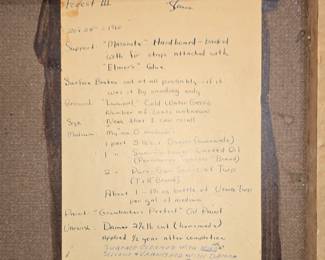 Forest III
Oct 25th - 1960
Support "Masonite" Hardboard - backed
with fir strips attached with
"Elmer's" Glue
Surface Broken out at all probably - if it
was it by sanding only
Ground "Luminall" Cold Water Gesso
Number of coats unknown
Size None that I can recall
Medium "My own O medium"
1 part 5 lb cut Damar (homemade)
1 " Sun-thickened Linseed Oil
(Permanent Pigments Brand)
2 " Pure Gum Spirits Turp
(T & R Brand)
About 1 - 1½ oz bottle of Venice Turp
per gal of medium
Paint "Grumbacher Pretest" Oil Paint
Varnish Damar 2½ lb cut (homemade)
applied ½ year after completion
SURFACE CLEANED WITH